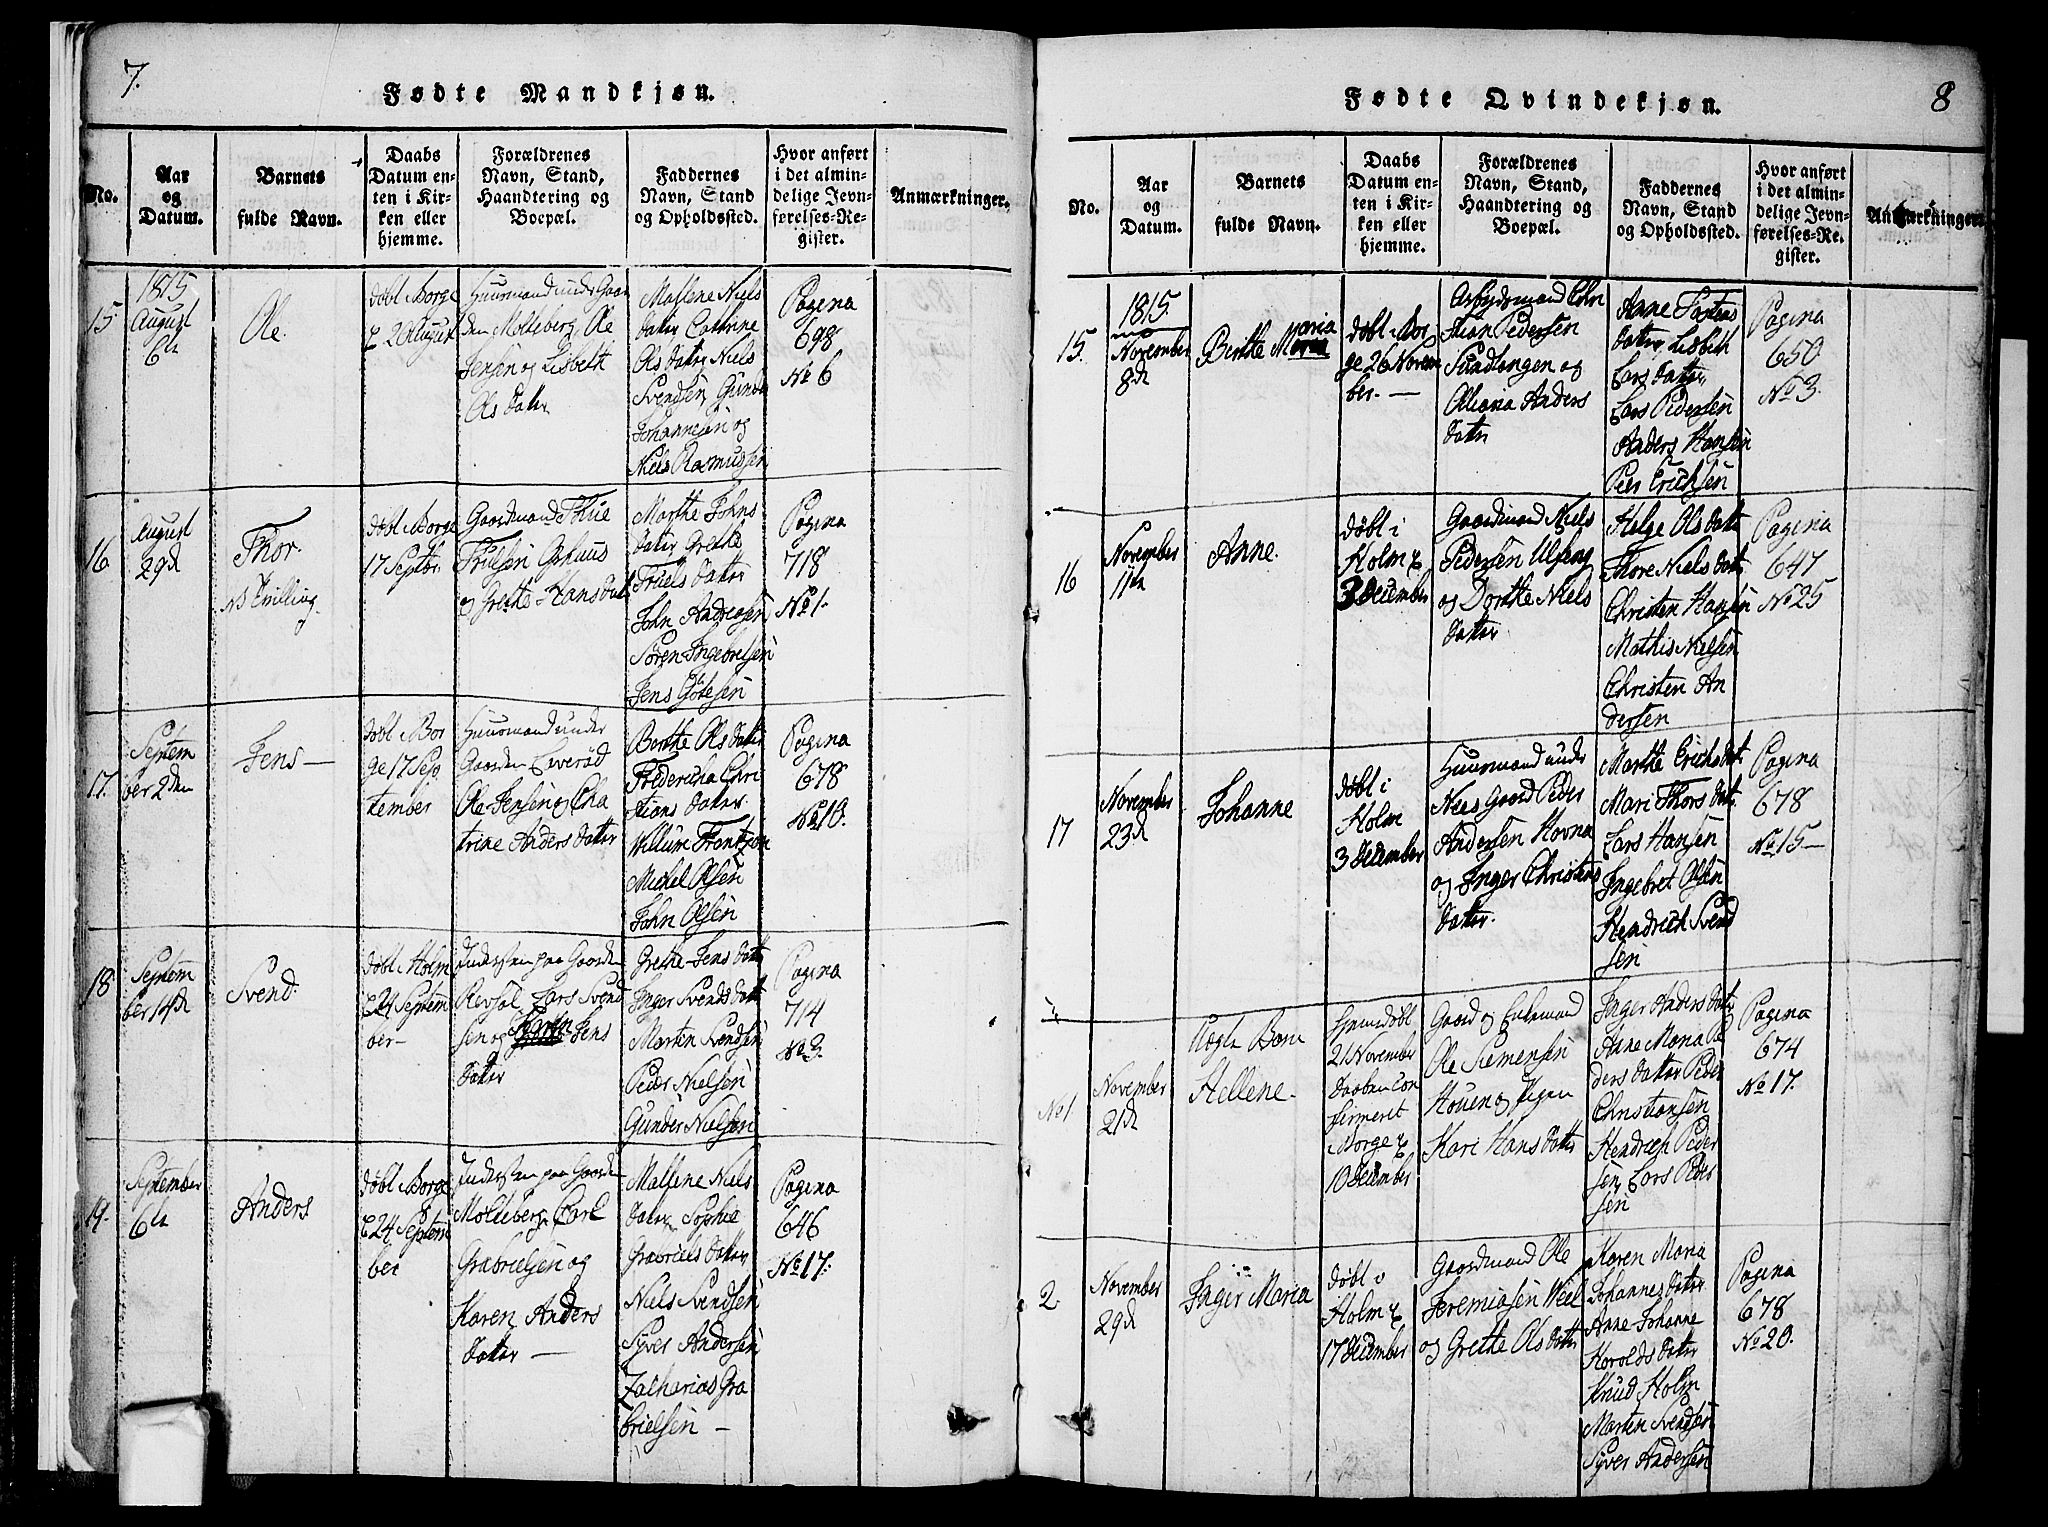 7.
Fødte Mandkjøn.
No.
Aar
og
Datum.
Barnets
fulde Navn.
Daabs
Datum en-
ten i Kir-
ken eller
hjemme.
Forældrenes
Navn, Stand,
Haandtering og
Boepæl.
Faddernes
Navn, Stand
og Opholdssted.
Hvor anført
i det almin-
delige Jevn-
førelses-Re-
gister.
Anmærkninger.
15
1815
August
6te
Ole.
døbt i Borge
20 August
Huusmand under Gaar
den Molteberg Ole
Jensen og Lisbeth
Ols datter
Mallene Niels
datter Cathrine
Ols datter Niels
Svendsen Gunder
Johannesen og
Niels Rasmussen
Pagina
698
No 6
16
August
29d
Thor.
NB Tvilling
døbt i Borge
17 Septbr
Gaardmand Thue
Truelsen
og Grethe Hans dat
Marthe Johns
datter Grethe
Truels datter
John Andreasen
Søren Ingebretsen
Jens
Pagina
718
No 1.
17.
Septem
ber 2den
Jens —
døbt i Bor
ge 17 Sep
tember
Huusmand under
Gaarden Everød
Ole Jensen og Cha
trine Anders datter
Berthe Ols datter
Fredericha Chri
stians datter
Willum Frantzen
Michel Olsen
John Olsen
Pagina
678
No 10.
18
Septem
ber 14d
Svend.
døbt i Holm
24 Septem
ber —
Inderst paa Gaarden
Revsøl Lars Svend
sen og Karen Jens
datter
Grethe Jens datt
Inger Svends datt
Martin Svendsen
Peder Nielsen
Gunder Nielsen
Pagina
714
No 3.
19.
September
6te
Anders
døbt i Borge
24 Septem
ber
Inderst paa Gaarden
Molteberg Carl
Grabrielsen og
Karen Anders
datter —
Mallene Niels
datter Sophie
Grabriels datter
Niels Svendsen
Syver Andersen
Zacharias Gra
brielsen —
Pagina
646
No 17.
8
Fødte Qvindekjøn.
No.
Aar
og
Datum.
Barnets
fulde Navn.
Daabs
Datum en-
ten i Kir-
ken eller
hjemme.
Forældrenes
Navn, Stand,
Haandtering og
Boepæl.
Faddernes
Navn, Stand
og Opholdssted.
Hvor anført
i det almin-
delige Jevn-
førelses-Re-
gister.
Anmærkninger.
15.
1815.
November
8d
Berthe Maria
døbt i Bor
ge 26 Novem
ber. —
Arbeidsmand Chri
stian Pedersen
Sundlangen og
Oliana Anders
datter
Anne
datter Lisbeth
Lars datter
Lars Pedersen
Anders Hansen
Peer Erichsen
Pagina
650
No 3.
16
November
11te
Anne.
døbt i
Holm
3 December
Gaardmand Niels
Pedersen Ulfeng
og Dorthe Niels
datter
Helge Ols datt
Thore Niels datt
Christen Hansen
Mathis Nielsen
Christen An
dersen
Pagina
647
No 25
17
November
23d
Johanne
døbt i
Holm
3 December
Huusmand under
Nies Gaard Peder
Andersen Hovna
og Inger Christens
datter.
Marthe Erichs dat
Mari Thors dat
Lars Hansen
Ingebret Olsen
Hendrich Svend
sen
Pagina
678
No 15 —
No 1
November
21d
Uægte Barn
Hellene.
Hjemdøbt
21 November
Daaben con
firmeret
Borge
10 December
Gaard og Enkemand
Ole Siemensen
Houen og Pigen
Kari Hans datter
Inger Anders datt
Anne Maria Pe
ders datter Peder
Christiansen
Hendrich Peder
sen Lars Peder
sen
Pagina
674
No 17.
2.
November
29d
Inger Maria
døbt i
Holm
17 December
Gaardmand Ole
Jeremiasen Weel
og Grethe Ols datter
Karen Maria
Johannes datter
Anne Johanne
Harolds datter
Knud Holm
Marten Svendsen
Syver Andersen
Pagina
678
No 20.